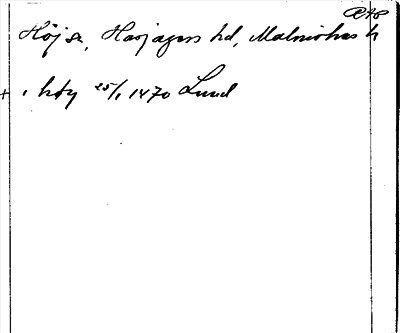 Höj sn, Harjagers hd, Malmöhus l
+ i höy 25/1 1470 Lund